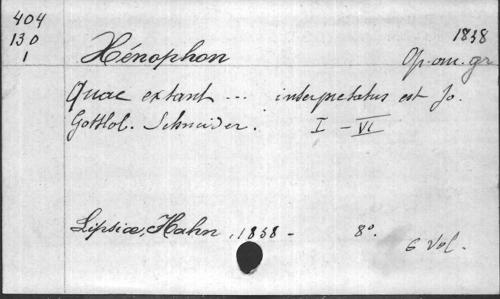 404
130
1
1838
Xénophon Op. om. gr
Quae extant ... interpretatus est Jo.
Gottlob. Schneider. I - VI
Lipsiae, Hahn, 1838 - 8°.
6 Vol.